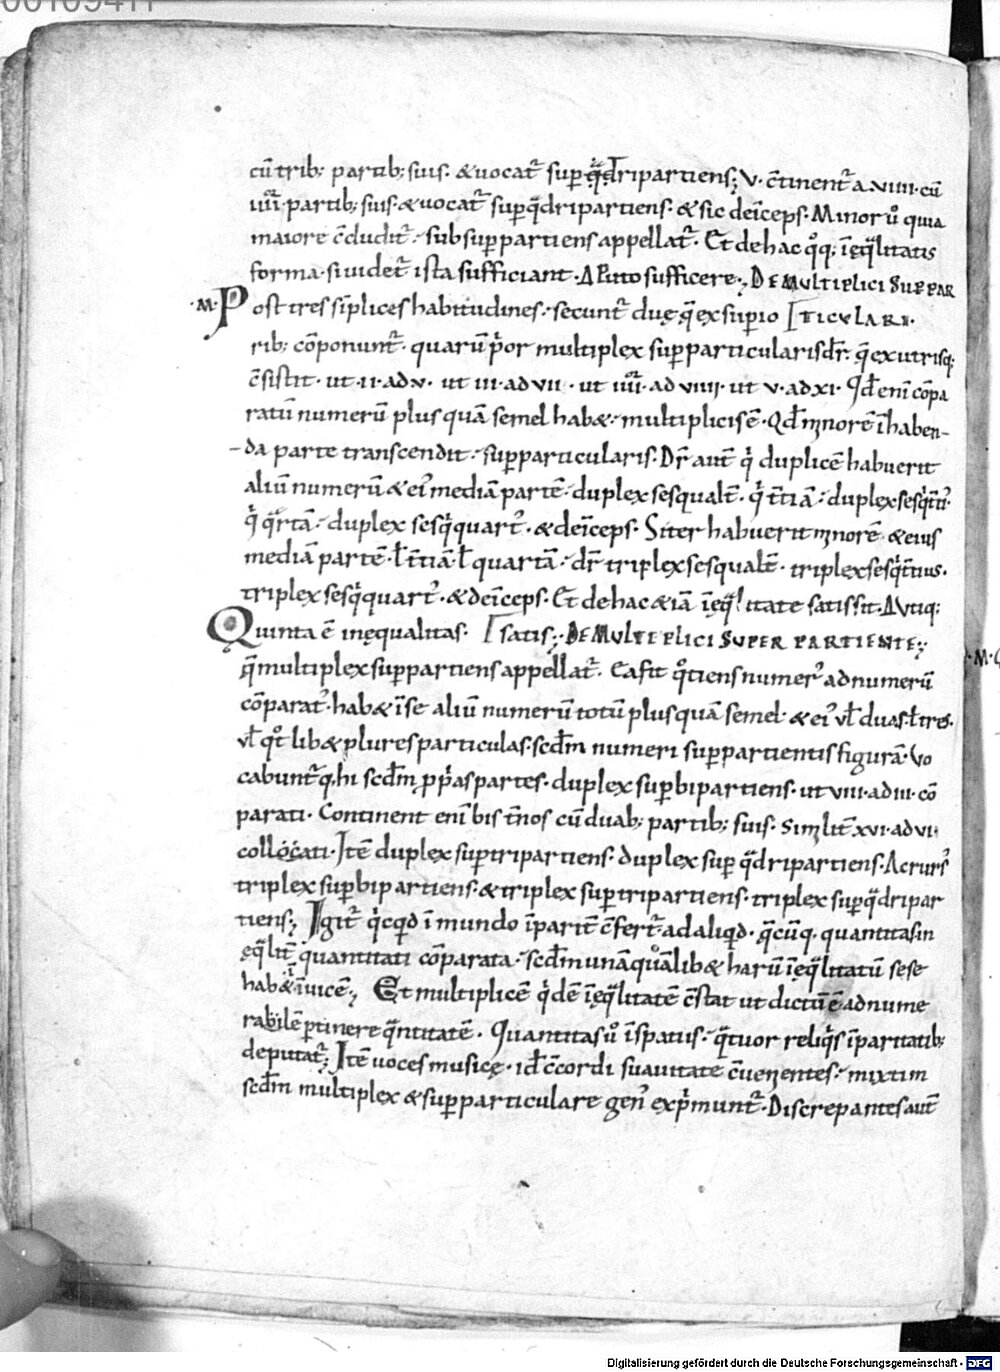 cū trib; partib; suis. & uocat͛ sup̱q̄dripartiens; V. c̄tinent͛ a. VIIII. cū
IIII. partib; suis. & uocat͛ sup̱q̄dripartiens. & sic deīceps. Minor ů quia
maiore c̄cludit͛. subsup̱partiens appellat͛. Et de hac q̊q; īęq̄litatis
forma. si uidet͛ ista sufficiant. A Puto sufficere; DE MULTIPLICI SUPPAR
·M· Post tres sīplices habitudines. secunt͛ duę q̄ ex sup̱io TICULARI.
rib; cōponunt͛. quarū p̓or multiplex sup̱particularis dr̄. q̄ ex utrisq;
c̄sistit. ut II. ad V. ut III. ad VII. ut IIII. ad VIIII. ut V. ad XI. Qđ enī cōpa
ratū numerū plus quā semel hab&. multiplicis ē. Qđ minorē ī haben-
-da parte transcendit. sup̱particularis. Dr̄ aut̄ q̓ duplicē habuerit
aliū numerū & ei᾿ mediā partē. duplex sesqualt̄. q̓ t̄tiā. duplex sesq̓t̄ti᾿.
q̓ q̄rtā. duplex sesq̓quart᾿. & deīceps. Si ter habuerit minorē. & eius
mediā partē. ł t̄tiā. ł quartā. dr̄ triplex sesqualt̄. triplex sesq̓t̄tius.
triplex sesq̓quart᾿. & deīceps. Et de hac &iā īęq̄litate satis sit. A Utiq;
Quinta ē inęqualitas. satis; DE MULTEPLICI SUPER PARTIENTE;
q̄ multiplex sup̱partiens appellat͛. Ea fit q̊tiens numer᾿ ad numerū
cōparat᾿. hab& ī se aliū numerū totū plus quā semel. & ei᾿ vł duas. ł tres.
vł q̊tlib& plures particulas. scđm numeri sup̱partientis figurā. Vo
cabunt͛q; hi scđm p̱p̓as partes. duplex sup̱bipartiens. ut VIII. ad III. cō
parati. Continent enī bis t̄nos cū duab; partib; suis. Similit̄ XVI. ad VI.
collocati. Itē duplex sup̱tripartiens. duplex sup̱q̄dripartiens. Ac rurs᾿
triplex sup̱bipartiens. & triplex sup̱tripartiens. triplex sup̱q̄dripar
tiens; Igit͛ q̓cq̓d ī mundo īparit̄ c̄fert͛ ad aliq̓d. q̄cūq; quantitas in
ęq̄lit̄ quantitati cōparata. scđm unā quālib& harū īęq̄litatū sese
hab& īuicē; Et multiplicē q̓dē īęq̄litatē c̄stat ut dictū ē ad nume
rabilē p̱tinere q̄ntitatē. Quantitas ů ī spatiis. q̄tuor reliq̓s īparitatib;
deputat͛; Itē uoces musicę. id̄ c̄cordi suauitate c̄uenientes. mixtim
scđm multiplex & sup̱particulare gen᾿ exp̓munt͛. Discrepantes aut̄